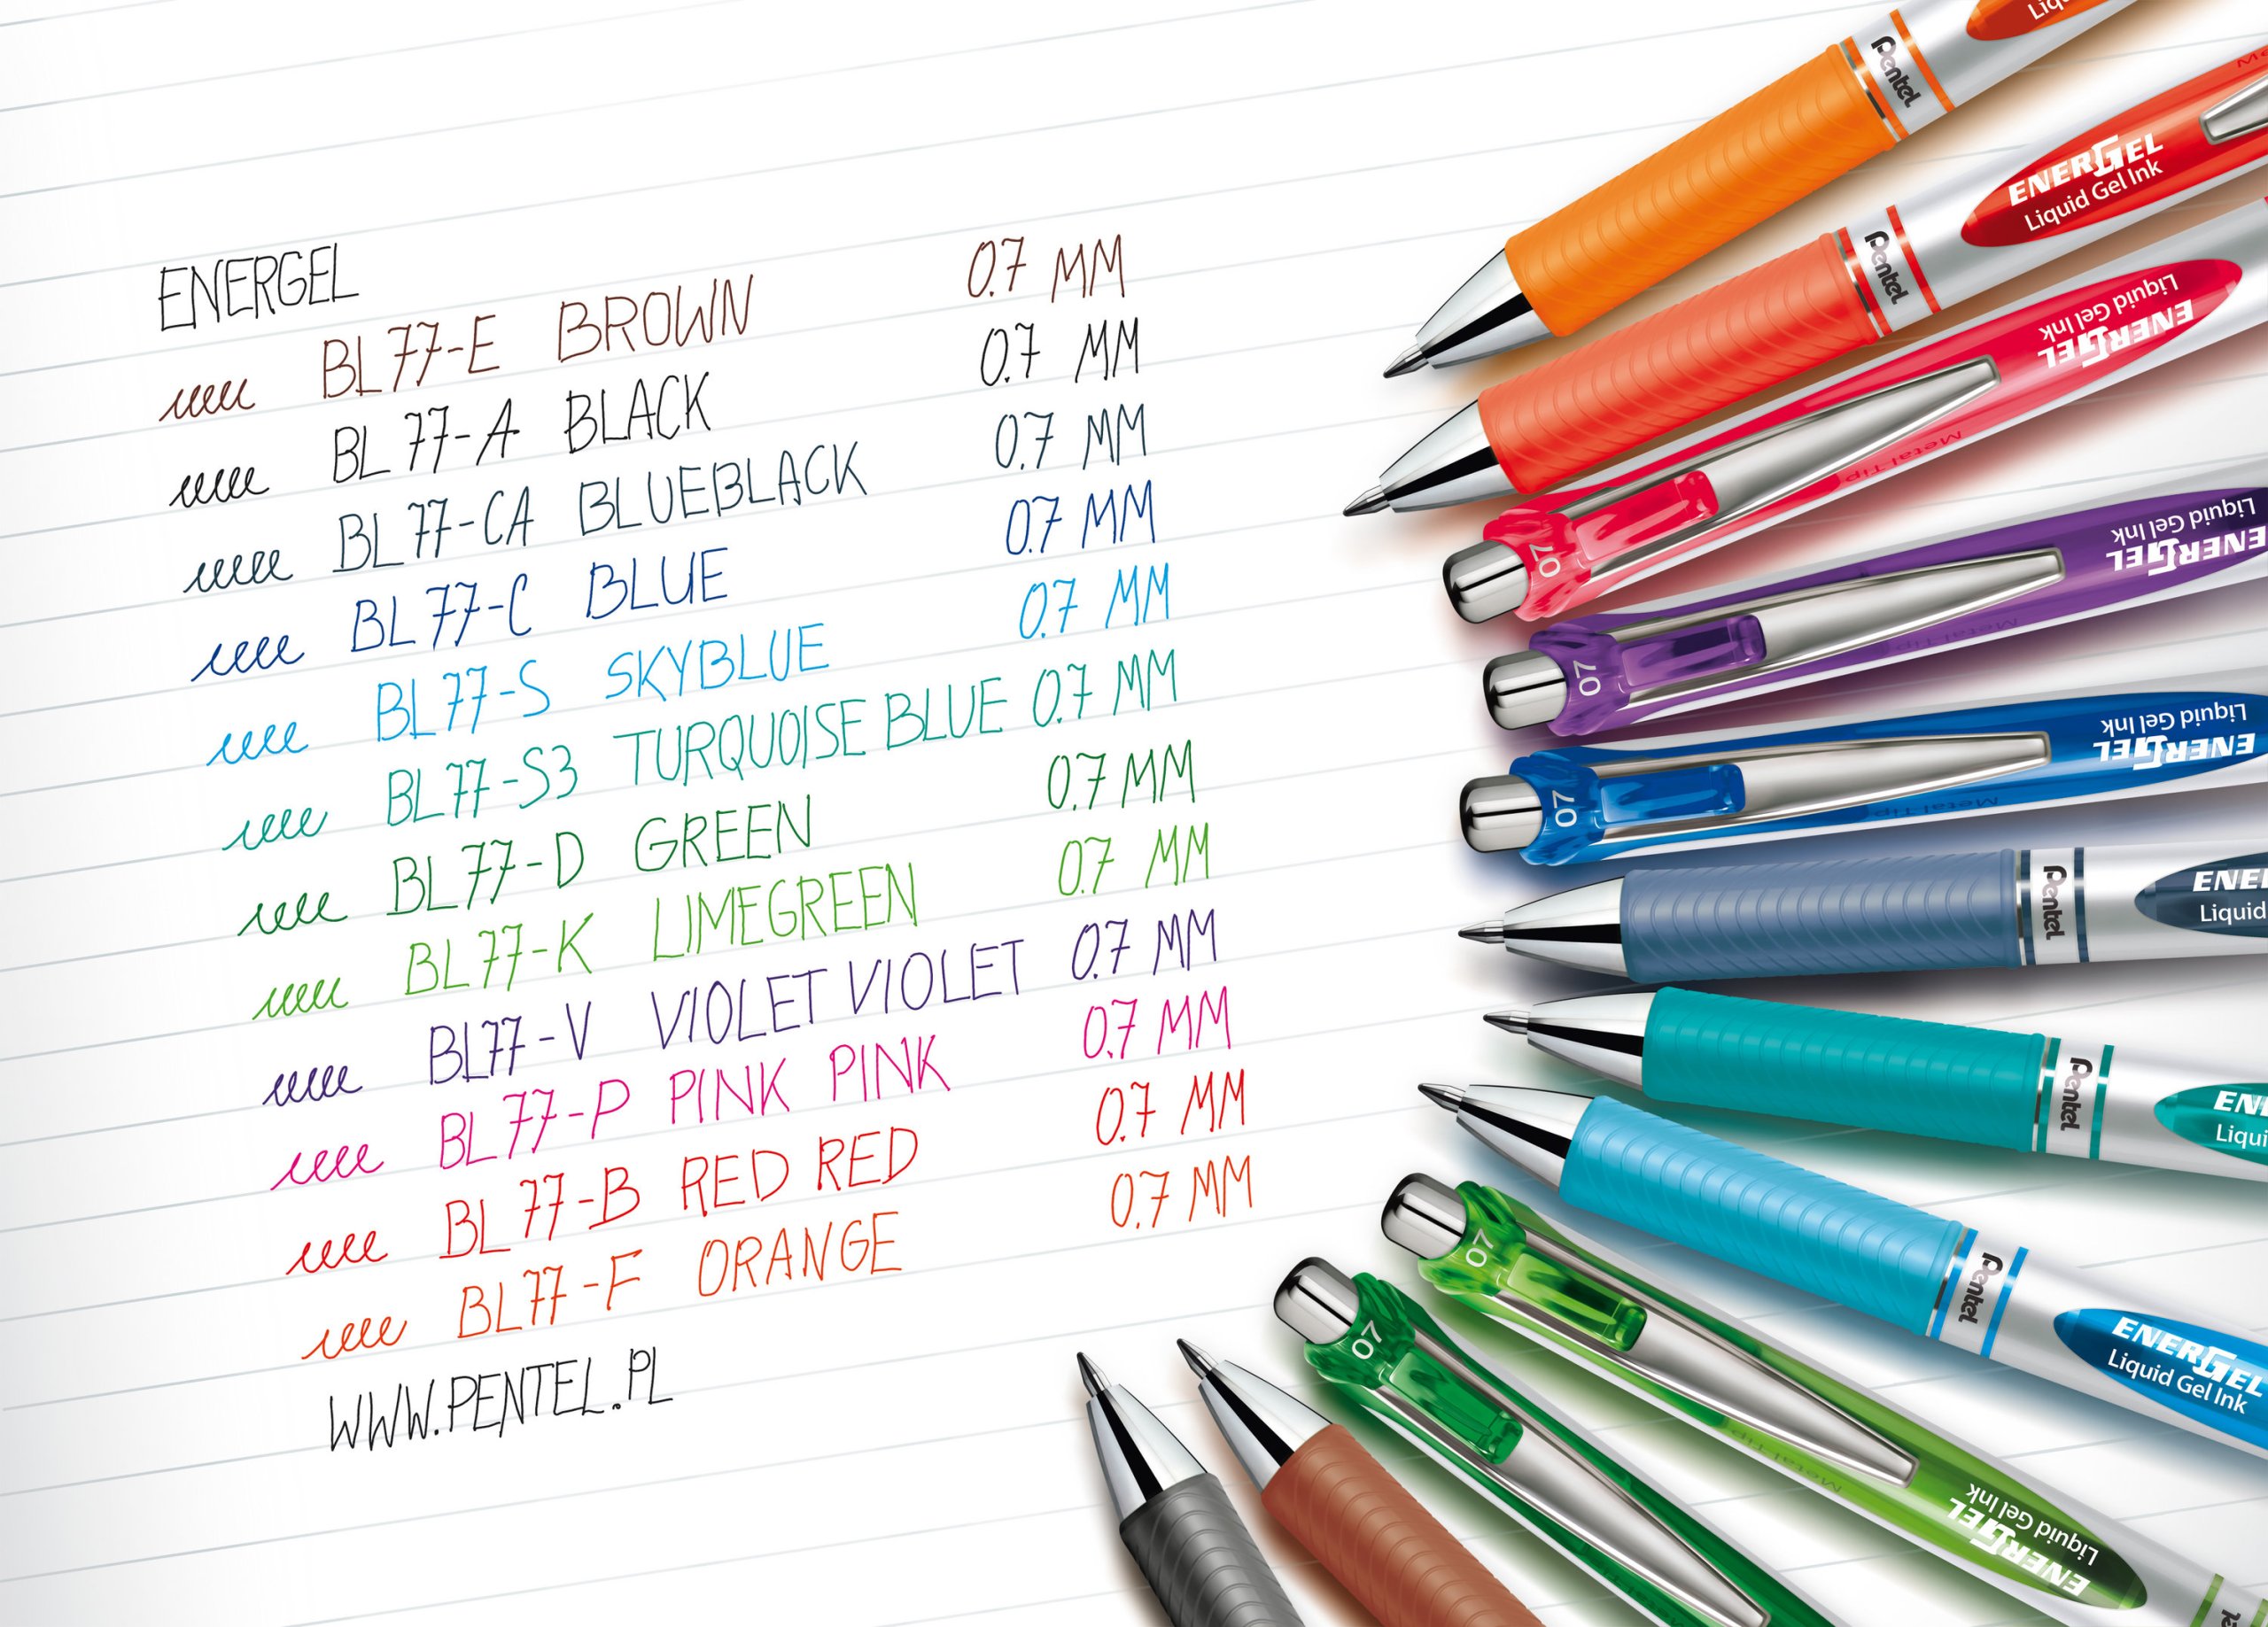 ENERGEL
BL77-E BROWN 0.7 MM
BL77-A BLACK 0.7 MM
BL77-CA BLUEBLACK 0.7 MM
BL77-C BLUE 0.7 MM
BL77-S SKYBLUE 0.7 MM
BL77-S3 TURQUOISE BLUE 0.7 MM
BL77-D GREEN 0.7 MM
BL77-K LIMEGREEN 0.7 MM
BL77-V VIOLET VIOLET 0.7 MM
BL77-P PINK PINK 0.7 MM
BL77-B RED RED 0.7 MM
BL77-F ORANGE 0.7 MM
WWW.PENTEL.PL
Pentel
Pentel
ENERGEL
Liquid Gel Ink
ENERGEL
Liquid Gel Ink
Metal Tip
07
ENERGEL
Liquid Gel Ink
Metal Tip
07
ENERGEL
Liquid Gel Ink
Metal Tip
07
Pentel
Liquid
Pentel
Pentel
ENERGEL
Liquid Gel Ink
07
Metal Tip
ENERGEL
Liquid Gel Ink
07